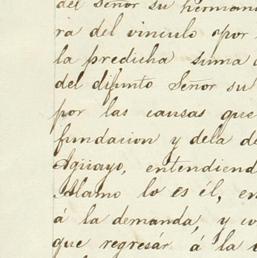 del Señor su herman
ra del vinculo por
la predicha suma
del difunto Señor su
por las causas que
fundacion y dela d
Aguayo, entendiend
Alamo lo es él, en
á la demanda, y co
que regresár á la